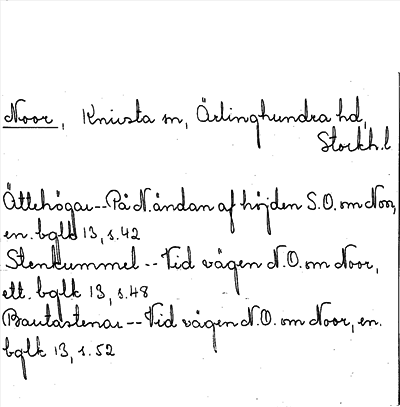 Noor, Knivsta sn, Ärlinghundra hd,
Stockh.l
Ättehögar--På N.ändan af höjden S.O. om Noor,
en. bglk 13, s.42
Stenkummel--Vid vägen N.O. om Noor,
ett. bglk 13, s.48
Bautastenar--Vid vägen N.O. om Noor, en.
bglk 13, s.52